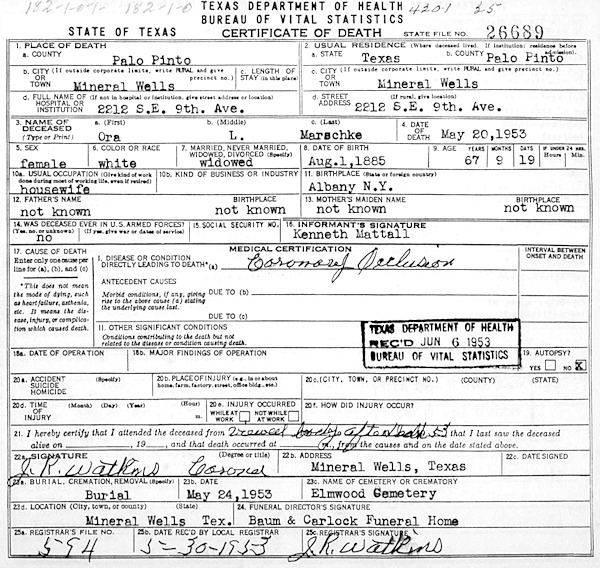 182-1-0-1- 182-1-0 TEXAS DEPARTMENT OF HEALTH 420.1 25
BUREAU OF VITAL STATISTICS
STATE OF TEXAS CERTIFICATE OF DEATH STATE FILE NO. 26689
1. PLACE OF DEATH 2. USUAL RESIDENCE (Where deceased lived. If institution: residence before admission).
a. COUNTY Palo Pinto a. STATE Texas b. COUNTY Palo Pinto
b. CITY (If outside corporate limits, write RURAL and give precinct no.) OR TOWN Mineral Wells c. LENGTH OF STAY (in this place) c. CITY (If outside corporate limits, write RURAL and give precinct no.) OR TOWN Mineral Wells
d. FULL NAME OF (If not in hospital or institution, give street address or location) HOSPITAL OR INSTITUTION 2212 S.E. 9th. Ave. d. STREET ADDRESS (If rural, give location) 2212 S.E. 9th. Ave.
3. NAME OF DECEASED (Type or Print) a. (First) Ora b. (Middle) L. c. (Last) Marschke 4. DATE OF DEATH May 20,1953
5. SEX female 6. COLOR OR RACE white 7. MARRIED, NEVER MARRIED, WIDOWED, DIVORCED (Specify) widowed 8. DATE OF BIRTH Aug.1,1885 9. AGE YEARS 67 MONTHS 9 DAYS 19 IF UNDER 24 HRS. Hours Min.
10a. USUAL OCCUPATION (Give kind of work done during most of working life, even if retired) housewife 10b. KIND OF BUSINESS OR INDUSTRY 11. BIRTHPLACE (State or foreign country) Albany N.Y.
12. FATHER'S NAME not known BIRTHPLACE not known 13. MOTHER'S MAIDEN NAME not known BIRTHPLACE not known
14. WAS DECEASED EVER IN U.S. ARMED FORCES? (Yes, no, or unknown) no (If yes, give war or dates of service) 15. SOCIAL SECURITY NO. 16. INFORMANT'S SIGNATURE Kenneth Mattall
17. CAUSE OF DEATH MEDICAL CERTIFICATION INTERVAL BETWEEN ONSET AND DEATH
Enter only one cause per line for (a), (b), and (c)
I. DISEASE OR CONDITION DIRECTLY LEADING TO DEATH*(a) Coronary Occlusion
*This does not mean the mode of dying, such as heart failure, asthenia, etc. It means the disease, injury, or complication which caused death.
ANTECEDENT CAUSES
Morbid conditions, if any, giving rise to the above cause (a) stating the underlying cause last. DUE TO (b)
DUE TO (c)
II. OTHER SIGNIFICANT CONDITIONS
Conditions contributing to the death but not related to the disease or condition causing death.
TEXAS DEPARTMENT OF HEALTH
REC'D JUN 6 1953
BUREAU OF VITAL STATISTICS
18a. DATE OF OPERATION 18b. MAJOR FINDINGS OF OPERATION 19. AUTOPSY? YES NO X
20a. ACCIDENT SUICIDE HOMICIDE (Specify) 20b. PLACE OF INJURY (e.g., in or about home, farm, factory, street, office bldg., etc.) 20c. (CITY, TOWN, OR PRECINCT NO.) (COUNTY) (STATE)
20d. TIME OF INJURY (Month) (Day) (Year) (Hour) m. 20e. INJURY OCCURRED WHILE AT WORK NOT WHILE AT WORK 20f. HOW DID INJURY OCCUR?
21. I hereby certify that I attended the deceased from Viewed body after death 53 that I last saw the deceased
alive on , 19 , and that death occurred at m., from the causes and on the date stated above.
22a. SIGNATURE (Degree or title) J.R. Watkins Coroner 22b. ADDRESS Mineral Wells, Texas 22c. DATE SIGNED
23a. BURIAL, CREMATION, REMOVAL (Specify) Burial 23b. DATE May 24,1953 23c. NAME OF CEMETERY OR CREMATORY Elmwood Cemetery
23d. LOCATION (City, town, or county) (State) Mineral Wells Tex. 24. FUNERAL DIRECTOR'S SIGNATURE Baum & Carlock Funeral Home
25a. REGISTRAR'S FILE NO. 594 25b. DATE REC'D BY LOCAL REGISTRAR 5-30-1953 25c. REGISTRAR'S SIGNATURE J.R. Watkins